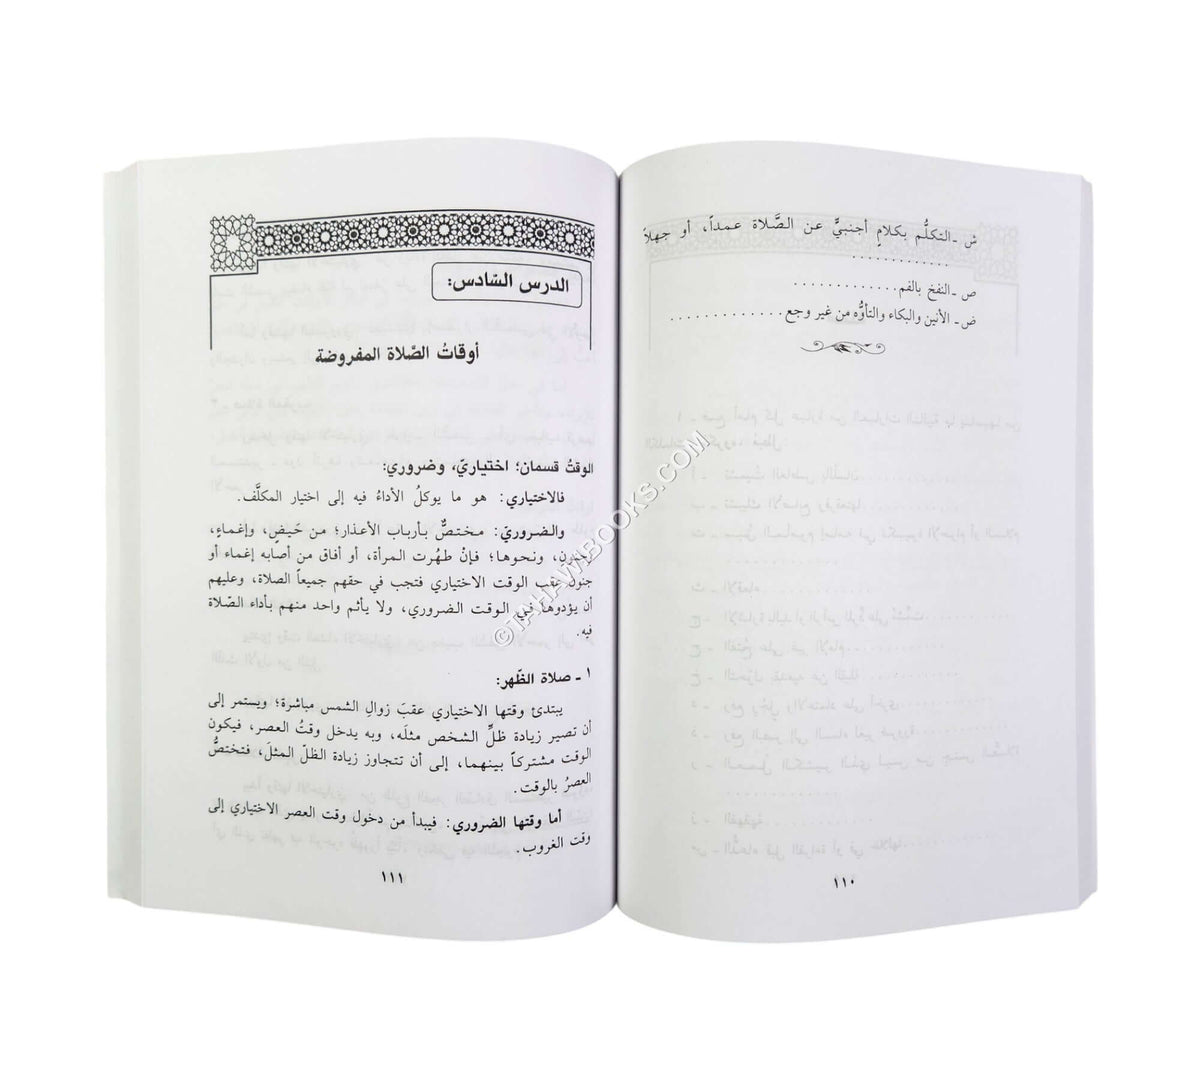 ش ـ التكلُّم بكلامٍ أجنبيٍّ عن الصَّلاة عمداً، أو جهلاً
. . . . . . . . . . . .
ص ـ النفخ بالفم . . . . . . . . . . . . .
ض ـ الأنين والبكاء والتأوُّه من غير وجع . . . . . . . . . . . . .
١١٠
الدرس السّادس:
أوقاتُ الصَّلاة المفروضة
الوقتُ قسمان؛ اختياريّ، وضروري:
فالاختياري: هو ما يوكلُ الأداءُ فيه إلى اختيار المكلَّف.
والضروريّ: مختصٌّ بأرباب الأعذار؛ من حَيضٍ، وإغماءٍ،
وجنونٍ، ونحوها؛ فإنْ طهُرت المرأة، أو أفاق من أصابه إغماء أو
جنول عقب الوقت الاختياري فتجب في حقهم جميعاً الصلاة، وعليهم
أن يؤدوها في الوقت الضروري، ولا يأثم واحد منهم بأداء الصَّلاة
فيه.
١ ـ صلاة الظّهر:
يبتدئ وقتها الاختياري عقبَ زوالِ الشمس مباشرة؛ ويستمر إلى
أن تصير زيادة ظلِّ الشخص مثلَه، وبه يدخل وقتُ العصر، فيكون
الوقت مشتركاً بينهما، إلى أن تتجاوز زيادة الظلّ المثلَ، فتختصُّ
العصرُ بالوقت.
أما وقتها الضروري: فيبدأ من دخول وقت العصر الاختياري إلى
وقت الغروب.
١١١
©TAHAWIBOOKS.COM